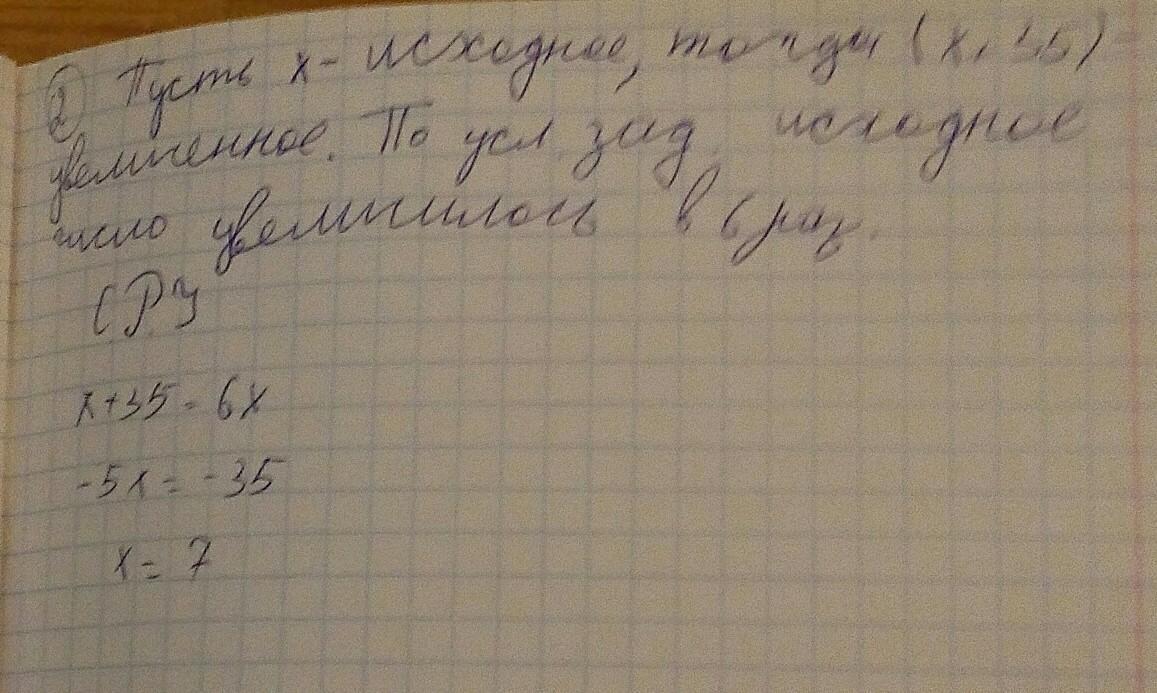 ② Пусть х - исходное, тогда (х+35) -
увеличенное. По усл. зад. исходное
число увеличилось в 6 раз.
СРУ
х+35=6х
-5х=-35
х=7